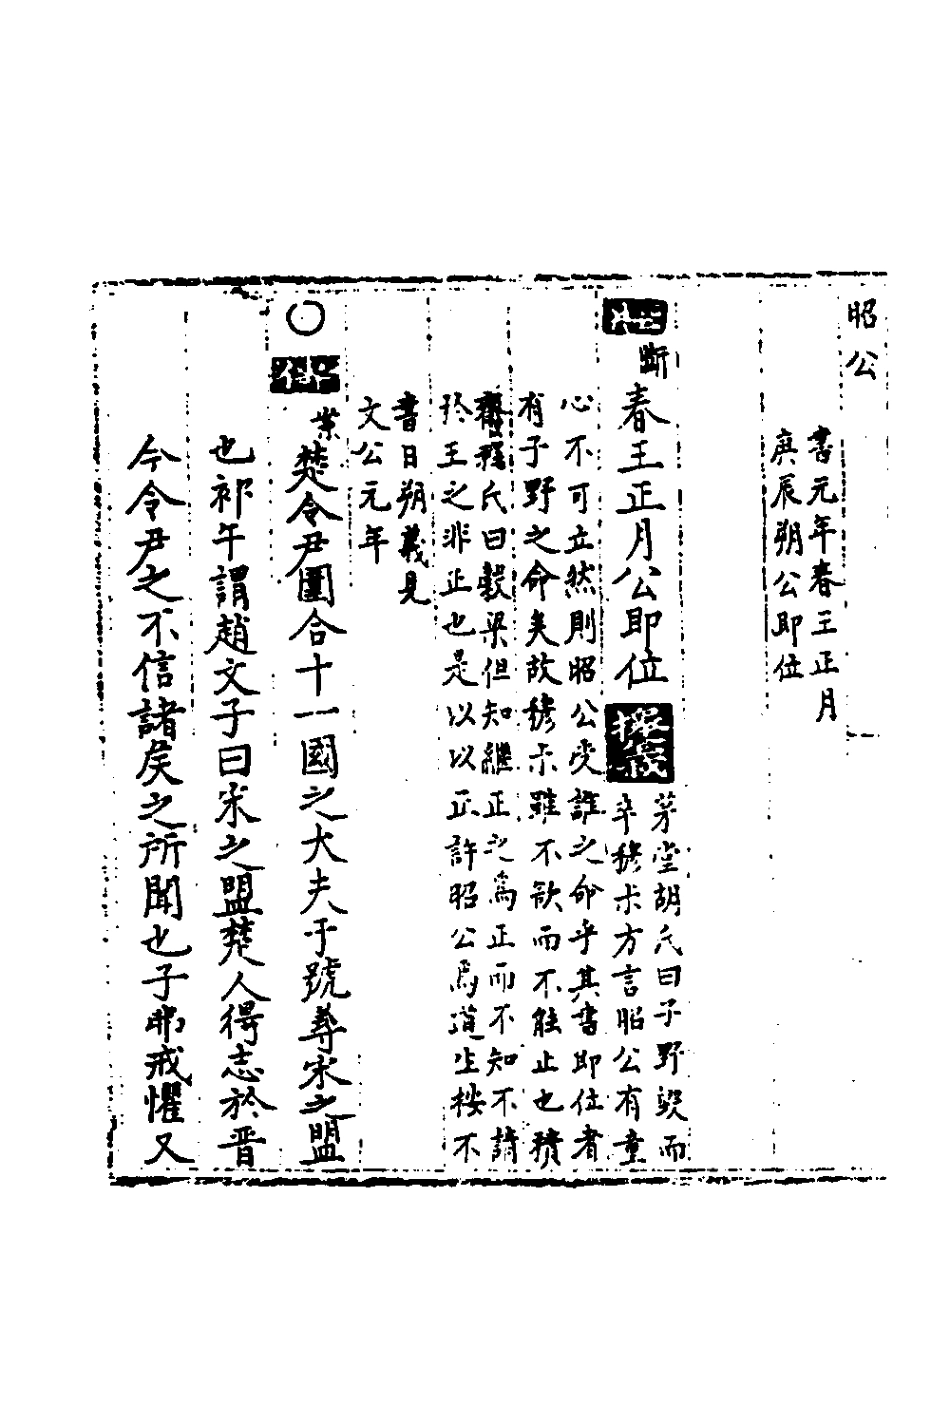 昭公
書元年春王正月
庚辰朔公即位
斷春王正月公即位
茅堂胡氏曰子野毀而
卒穆叔方言昭公有童
心不可立然則昭公受誰之命乎其書即位者
有子野之命矣故穆叔雖不欲而不能止也積
齋程氏曰穀梁但知繼正之為正而不知不請
於王之非正也是以以正許昭公焉道生按不
書日朔義見
文公元年
○
業楚令尹圍合十一國之大夫于號尋宋之盟
也祁午謂趙文子曰宋之盟楚人得志於晋
今令尹之不信諸矦之所聞也子弗戒懼又